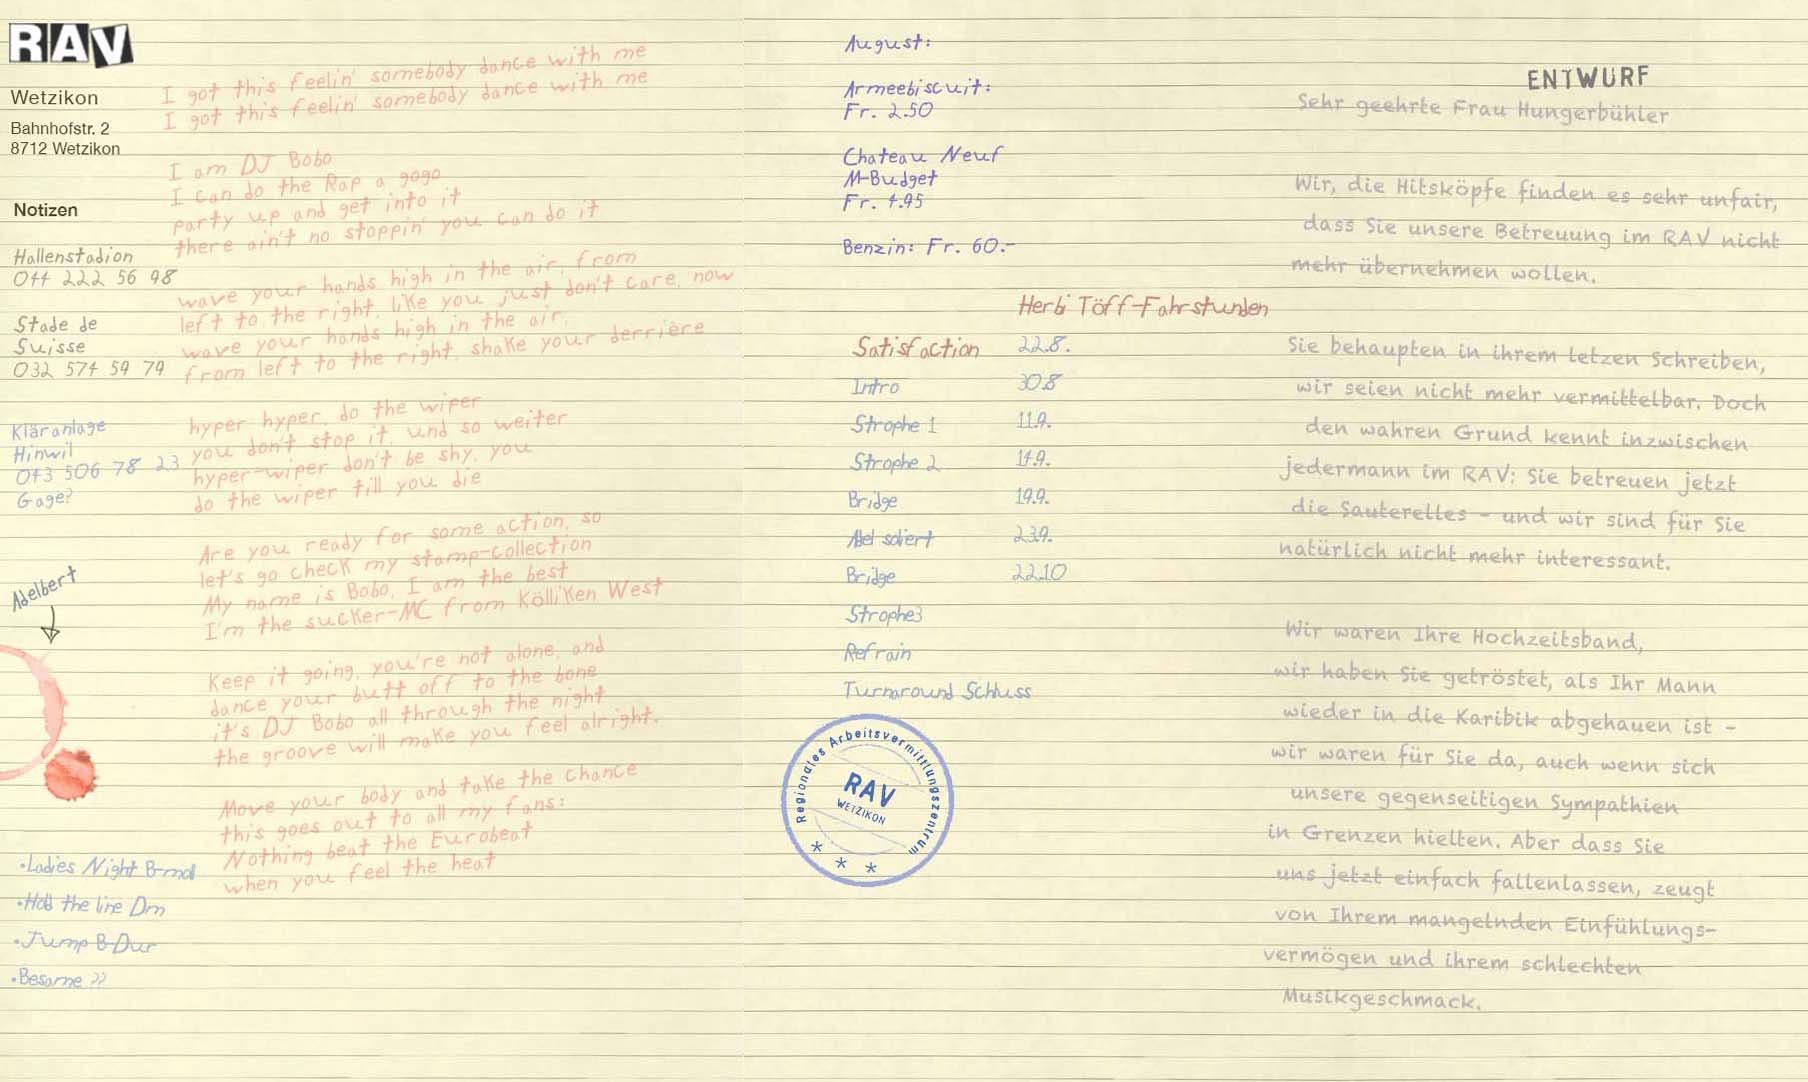 RAV
Wetzikon
Bahnhofstr. 2
8712 Wetzikon
Notizen
Hallenstadion
044 222 56 98
Stade de
Suisse
032 574 59 79
Kläranlage
Hinwil
043 506 78 23
Gage?
Adelbert
•Ladies Night B-moll
•Hold the line Dm
•Jump B-Dur
•Besame ??
I got this feelin' somebody dance with me
I got this feelin' somebody dance with me
I am DJ Bobo
I can do the Rap a gogo
party up and get into it
there ain't no stoppin' you can do it
wave your hands high in the air, from
left to the right, like you just don't care, now
wave your hands high in the air,
from left to the right, shake your derrière
hyper hyper, do the wiper
you don't stop it, und so weiter
hyper-wiper don't be shy, you
do the wiper till you die
Are you ready for some action, so
let's go check my stamp-collection
My name is Bobo, I am the best
I'm the sucker-MC from Kölliken West
Keep it going, you're not alone, and
dance your butt off to the bone
it's DJ Bobo all through the night
the groove will make you feel alright.
Move your body and take the chance
this goes out to all my fans:
Nothing beat the Eurobeat
when you feel the heat
August:
Armeebiscuit:
Fr. 2.50
Chateau Neuf
M-Budget
Fr. 4.95
Benzin: Fr. 60.-
Herbi Töff-Fahrstunden
Satisfaction 22.8.
Intro 30.8
Strophe 1 11.9.
Strophe 2 14.9.
Bridge 19.9.
Adel soliert 23.9.
Bridge 22.10
Strophe3
Refrain
Turnaround Schluss
Regionales Arbeitsvermittlungszentrum
RAV
WETZIKON
* * *
ENTWURF
Sehr geehrte Frau Hungerbühler
Wir, die Hitsköpfe finden es sehr unfair,
dass Sie unsere Betreuung im RAV nicht
mehr übernehmen wollen.
Sie behaupten in ihrem letzen Schreiben,
wir seien nicht mehr vermittelbar. Doch
den wahren Grund kennt inzwischen
jedermann im RAV: Sie betreuen jetzt
die Sauterelles – und wir sind für Sie
natürlich nicht mehr interessant.
Wir waren Ihre Hochzeitsband,
wir haben Sie getröstet, als Ihr Mann
wieder in die Karibik abgehauen ist –
wir waren für Sie da, auch wenn sich
unsere gegenseitigen Sympathien
in Grenzen hielten. Aber dass Sie
uns jetzt einfach fallenlassen, zeugt
von Ihrem mangelnden Einfühlungs-
vermögen und ihrem schlechten
Musikgeschmack.